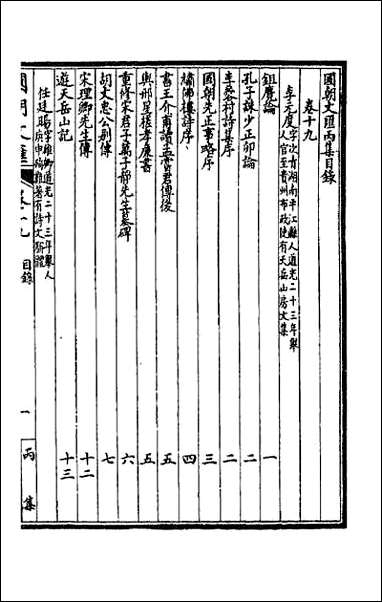 國朝文匯丙集目錄
卷十九
李元度 字次青湖南平江縣人道光二十三年舉
人官至貴州布政使有天岳山房文集
鉏麑論 一
孔子誅少正卯論 二
李翥村詩集序 二
國朝先正事略序 三
繡佛樓詩序 四
書王介甫讀孟嘗君傳後 五
與邢星槎孝廉書 五
重修宋君子萬子靜先生墓碑 六
胡文忠公別傳 七
宋理卿先生傳 十二
遊天岳山記 十三
任廷暘 字
道光二十三年舉人
著有詩文
國朝文匯 卷十九 目錄 一 丙集